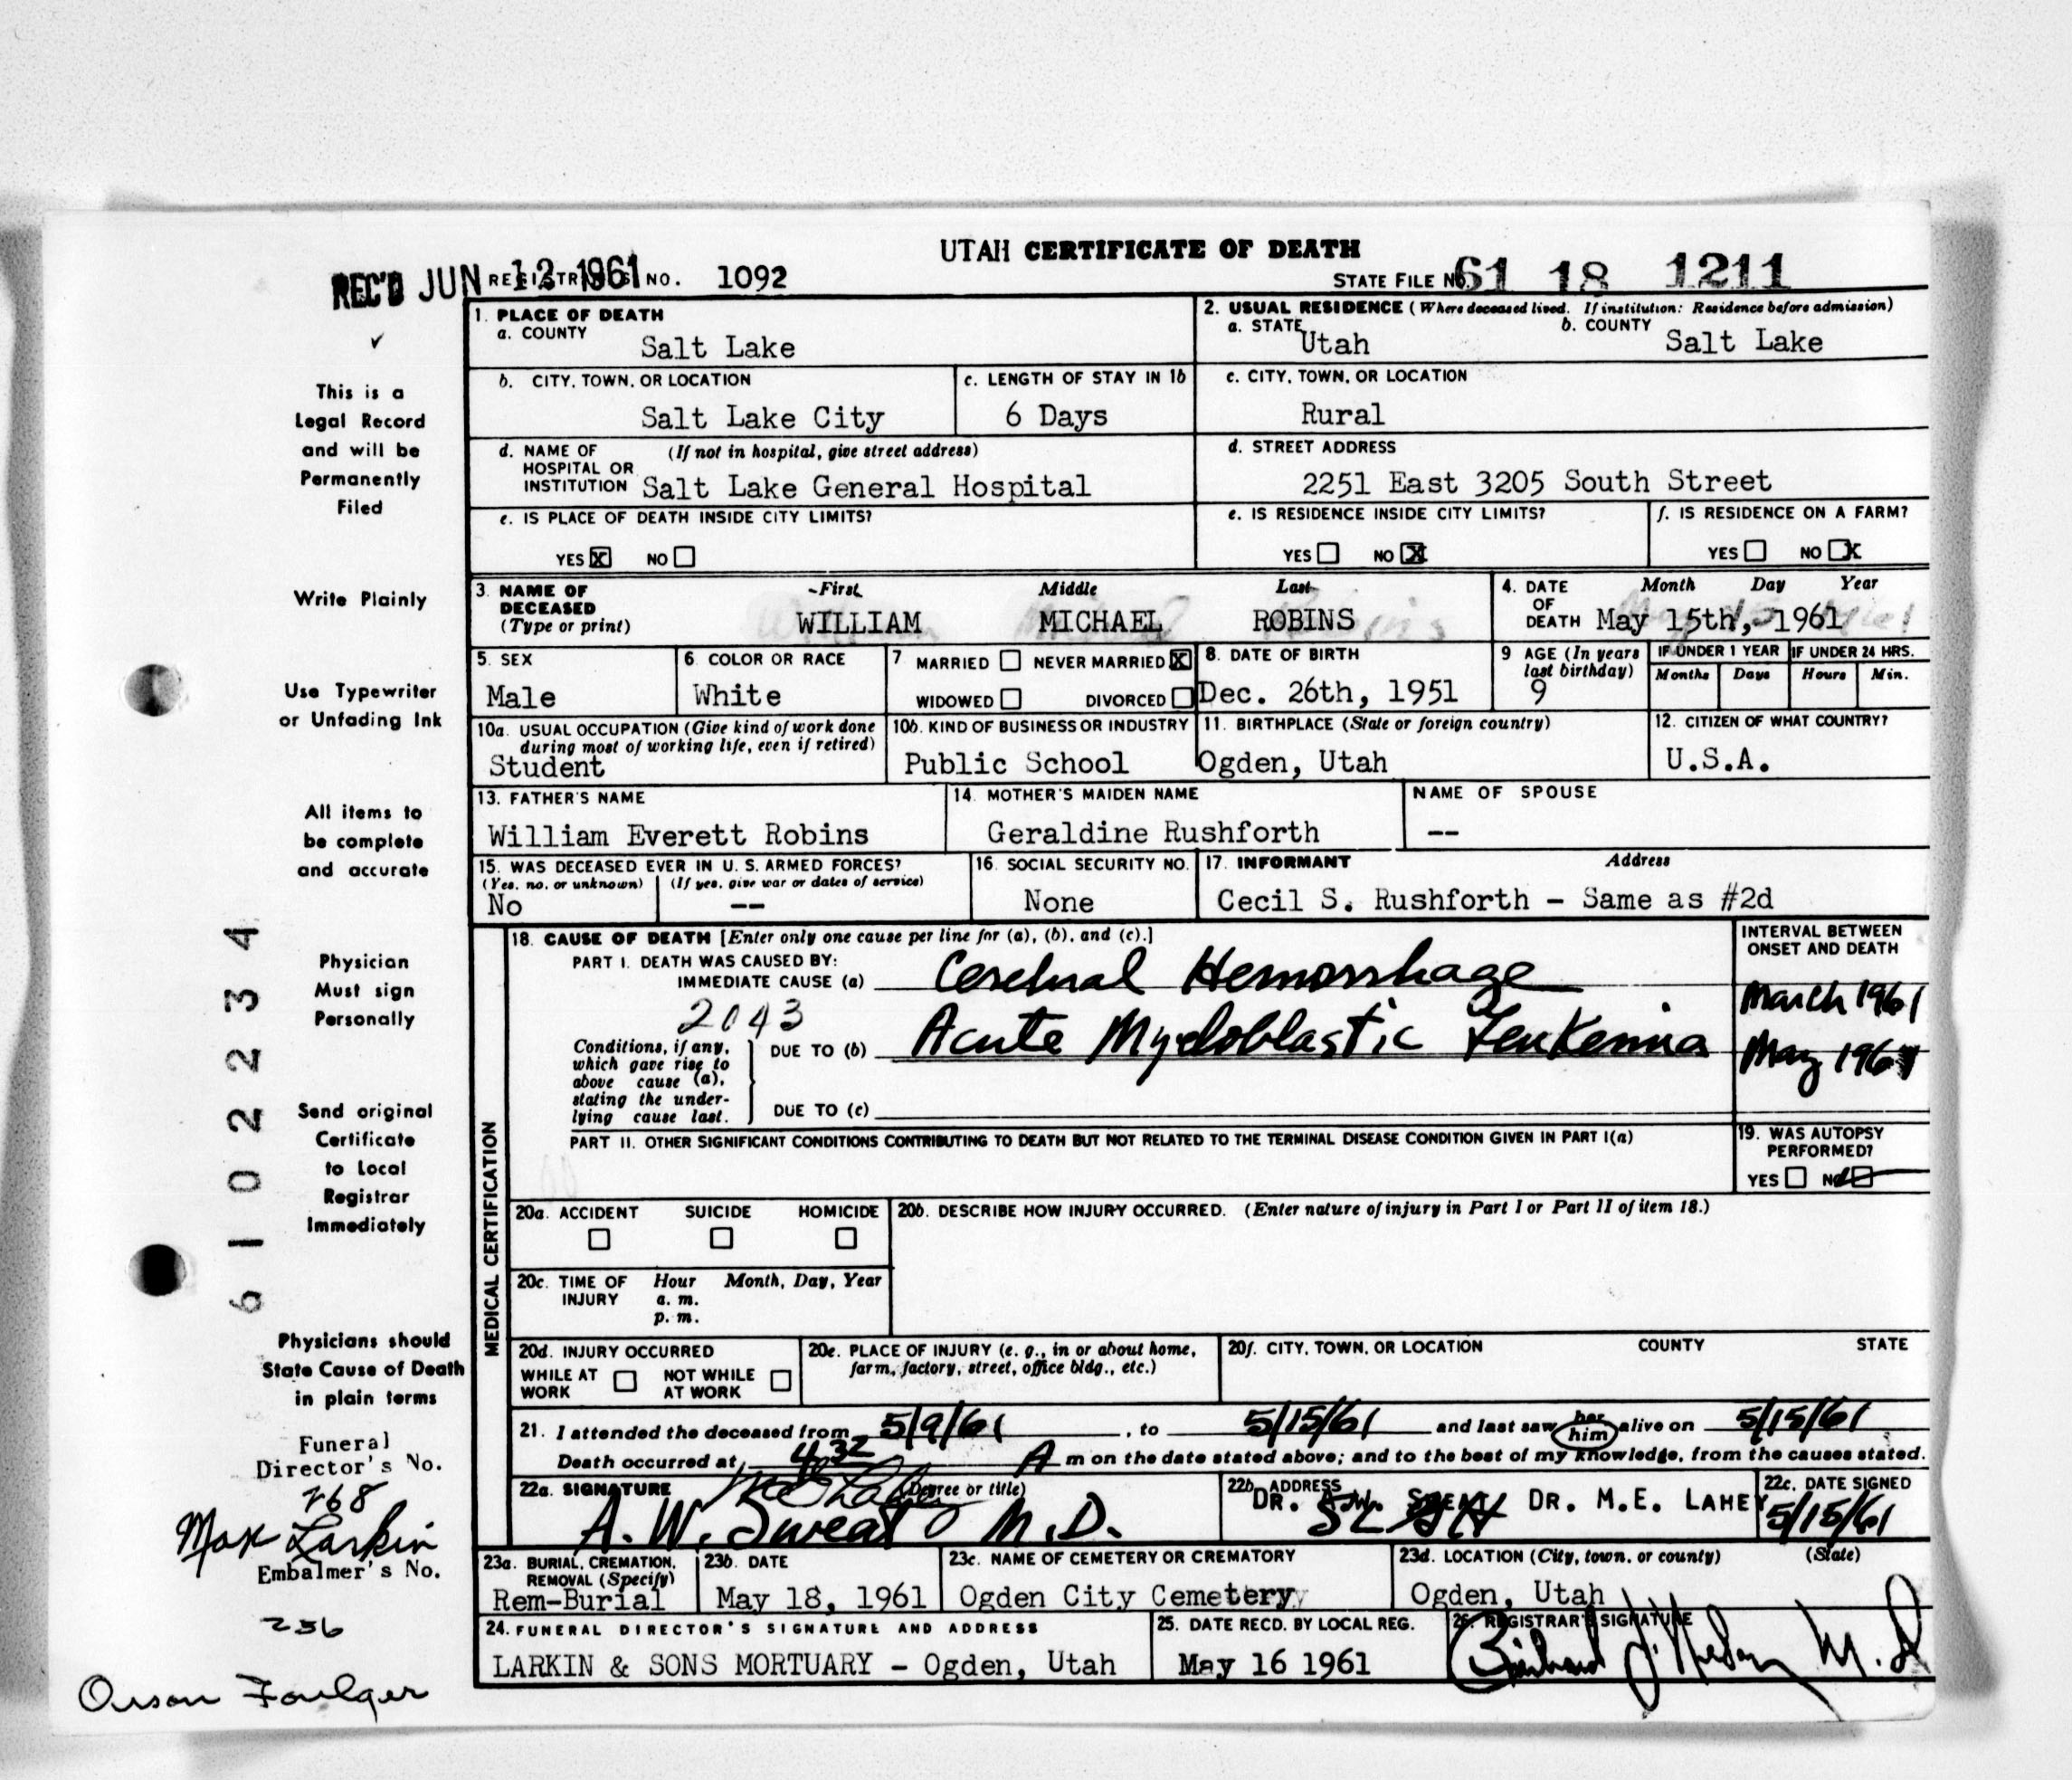 UTAH CERTIFICATE OF DEATH
REC'D JUN 12 1961 REGISTRAR'S NO. 1092 STATE FILE NO. 61 18 1211
1. PLACE OF DEATH
a. COUNTY Salt Lake
2. USUAL RESIDENCE (Where deceased lived. If institution: Residence before admission)
a. STATE Utah b. COUNTY Salt Lake
b. CITY, TOWN, OR LOCATION Salt Lake City
c. LENGTH OF STAY IN 1b 6 Days
c. CITY, TOWN, OR LOCATION Rural
d. NAME OF HOSPITAL OR INSTITUTION (If not in hospital, give street address) Salt Lake General Hospital
d. STREET ADDRESS 2251 East 3205 South Street
e. IS PLACE OF DEATH INSIDE CITY LIMITS?
YES X NO
e. IS RESIDENCE INSIDE CITY LIMITS?
YES NO X
f. IS RESIDENCE ON A FARM?
YES NO X
3. NAME OF DECEASED (Type or print) First Middle Last
WILLIAM MICHAEL ROBINS
4. DATE OF DEATH Month Day Year
May 15th, 1961
5. SEX Male
6. COLOR OR RACE White
7 MARRIED NEVER MARRIED X
WIDOWED DIVORCED
8. DATE OF BIRTH Dec. 26th, 1951
9 AGE (In years last birthday) 9
IF UNDER 1 YEAR Months Days
IF UNDER 24 HRS. Hours Min.
10a. USUAL OCCUPATION (Give kind of work done during most of working life, even if retired) Student
10b. KIND OF BUSINESS OR INDUSTRY Public School
11. BIRTHPLACE (State or foreign country) Ogden, Utah
12. CITIZEN OF WHAT COUNTRY? U.S.A.
13. FATHER'S NAME William Everett Robins
14. MOTHER'S MAIDEN NAME Geraldine Rushforth
NAME OF SPOUSE --
15. WAS DECEASED EVER IN U. S. ARMED FORCES?
(Yes, no, or unknown) (If yes, give war or dates of service)
No --
16. SOCIAL SECURITY NO. None
17. INFORMANT Address
Cecil S. Rushforth - Same as #2d
MEDICAL CERTIFICATION
18. CAUSE OF DEATH [Enter only one cause per line for (a), (b), and (c).]
INTERVAL BETWEEN ONSET AND DEATH
PART I. DEATH WAS CAUSED BY:
IMMEDIATE CAUSE (a) Cerebral Hemorrhage
March 1961
2043
Conditions, if any, which gave rise to above cause (a), stating the underlying cause last.
DUE TO (b) Acute Myeloblastic Leukemia
May 1961
DUE TO (c)
PART II. OTHER SIGNIFICANT CONDITIONS CONTRIBUTING TO DEATH BUT NOT RELATED TO THE TERMINAL DISEASE CONDITION GIVEN IN PART I(a)
19. WAS AUTOPSY PERFORMED?
YES NO
20a. ACCIDENT SUICIDE HOMICIDE
20b. DESCRIBE HOW INJURY OCCURRED. (Enter nature of injury in Part I or Part II of item 18.)
20c. TIME OF INJURY Hour Month, Day, Year
a. m.
p. m.
20d. INJURY OCCURRED
WHILE AT WORK NOT WHILE AT WORK
20e. PLACE OF INJURY (e. g., in or about home, farm, factory, street, office bldg., etc.)
20f. CITY, TOWN, OR LOCATION COUNTY STATE
21. I attended the deceased from 5/9/61, to 5/15/61 and last saw her him alive on 5/15/61
Death occurred at 4:32 A m on the date stated above; and to the best of my knowledge, from the causes stated.
22a. SIGNATURE (Degree or title)
A. W. Sweat M.D.
22b. ADDRESS DR. DR. M.E. LAHEY
22c. DATE SIGNED 5/15/61
23a. BURIAL, CREMATION, REMOVAL (Specify) Rem-Burial
23b. DATE May 18, 1961
23c. NAME OF CEMETERY OR CREMATORY Ogden City Cemetery
23d. LOCATION (City, town, or county) (State)
Ogden, Utah
24. FUNERAL DIRECTOR'S SIGNATURE AND ADDRESS
LARKIN & SONS MORTUARY - Ogden, Utah
25. DATE RECD. BY LOCAL REG. May 16 1961
26. REGISTRAR'S SIGNATURE
M.D.
This is a
Legal Record
and will be
Permanently
Filed
Write Plainly
Use Typewriter
or Unfading Ink
All items to
be complete
and accurate
Physician
Must sign
Personally
Send original
Certificate
to Local
Registrar
Immediately
Physicians should
State Cause of Death
in plain terms
61022234
Funeral
Director's No.
768
Max Larkin
Embalmer's No.
236
Orson Foulger